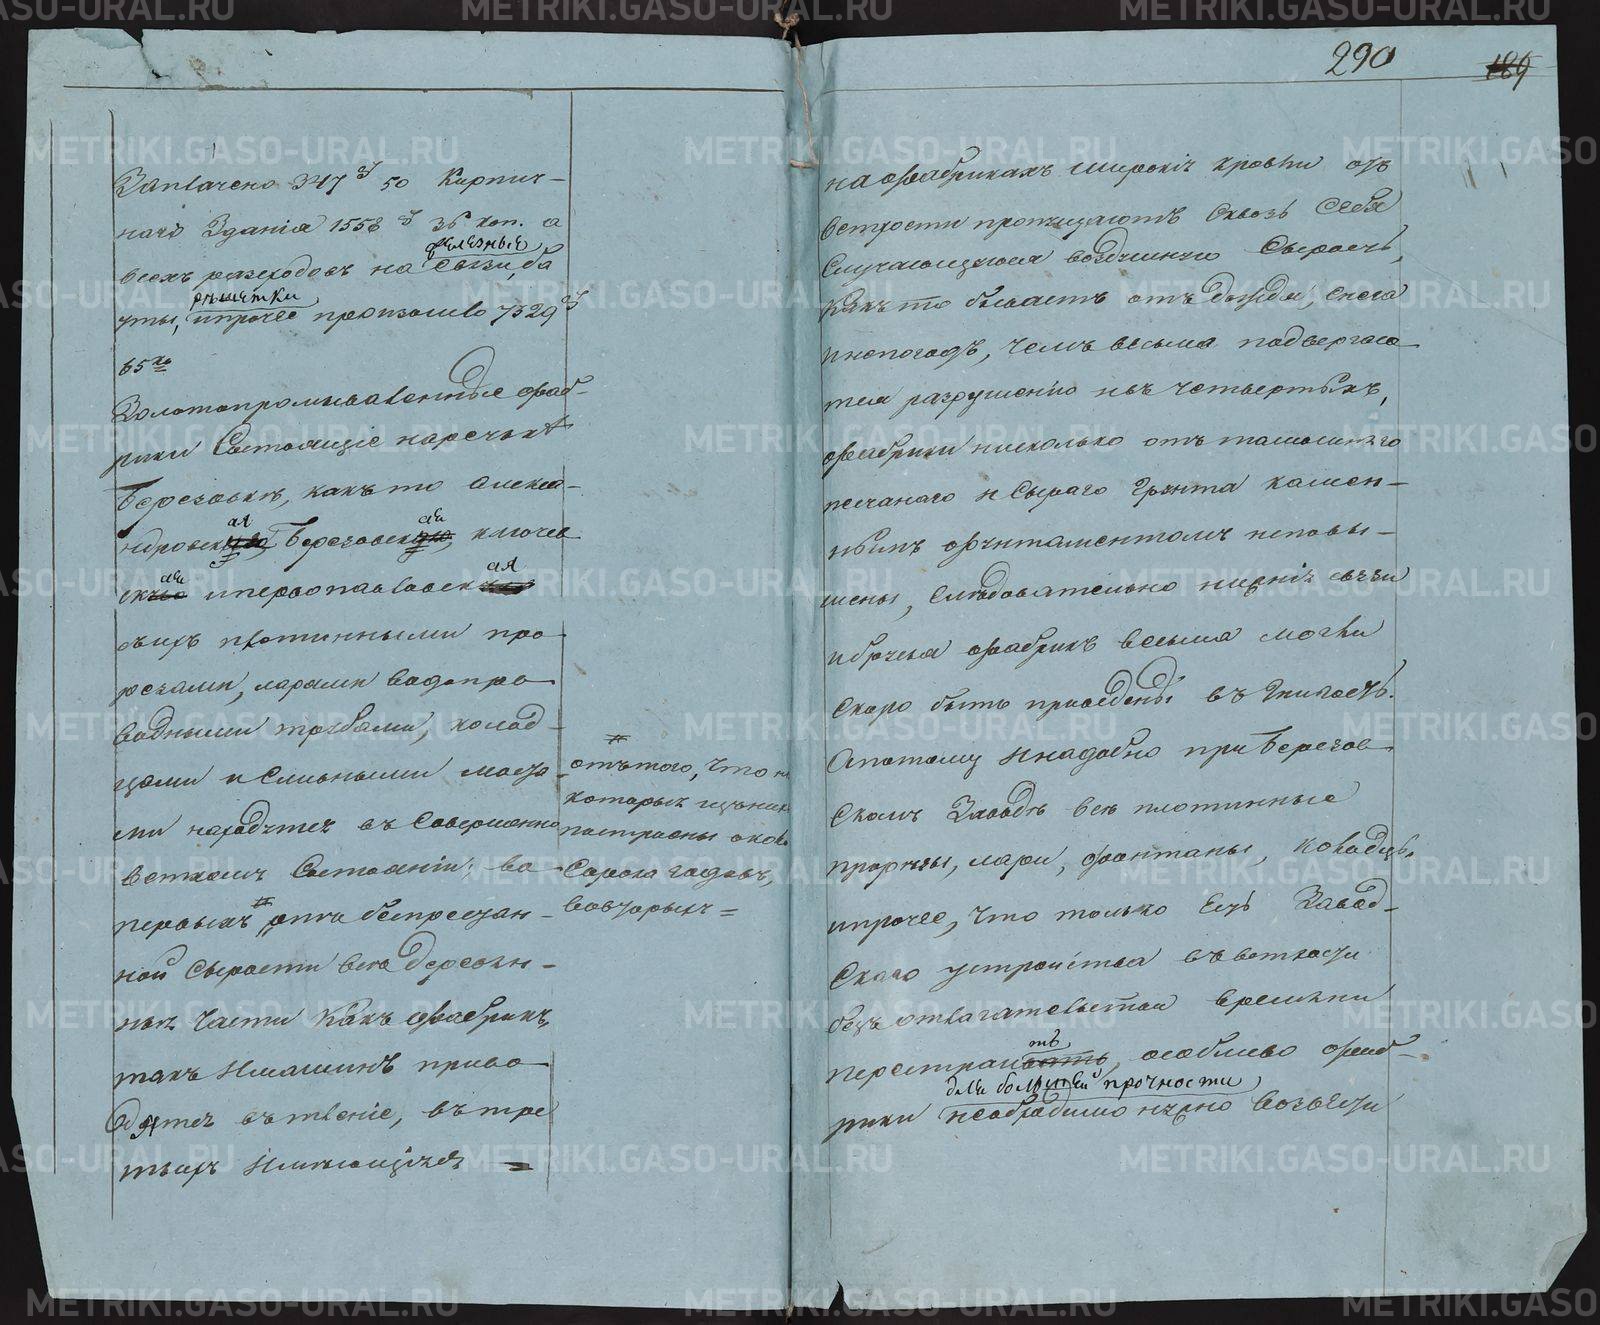 290
189
Заплачено 347 р 50 Кирпич-
наго Зданія 1558 р 36 коп. а
железные
всехъ расходовъ на связи, ба
решетки
уты, ипрочее произошло 7329 р
65 ко
Золотопромываленные фаб-
рики Состоящіе наречьке
Березовке, какъ то Алекса-
ая ая
ндровск Березовск, ключев
ая ая
ск ипервопавловск
съихъ плотинными про
резами, ларами водопро
водными трубами, колод-
цами и Сливными моста
ми находятся въ Совершенно
ветхомъ Состояніи; во
первыхъ # отъ безпрестан-
ной Сырости все деревян-
ныя части какъ фабрикъ,
такъ имашинъ приво
дятся въ тленіе, въ тре
тьихъ имеющіяся
#
отътого, что не
которыя изъних
построены около
Сорока годовъ,
вовторыхъ =
нафабрикахъ широкіе кровли отъ
ветхости пропущаютъ Сквозь Себя
Случающуюся воздушную Сырость,
какъ то бываетъ отъ дождя, снега
инепогодъ, чемъ весьма подвергаю
тся разрушенію ивъ четвертыхъ,
фабрики нисколько отъ тамошняго
песчанаго и Сыраго грунта камен-
нымъ фундаментомъ неповы-
шены, Следовательно нижніе связи
ибрусья фабрикъ весьма могли
скоро быть приведены въ гнилость.
Апотому инадобно при Березов
скомъ Заводе все плотинные
прорезы, лари, фонтаны, колодцы,
ипрочее, что только есть Завод-
скаго устройства въ ветхости
безъ отлагательства времени
ть
перестраивать, особливо фаб-
для большей прочности
рики необходимо нужно возвести
METRIKI.GASO-URAL.RU